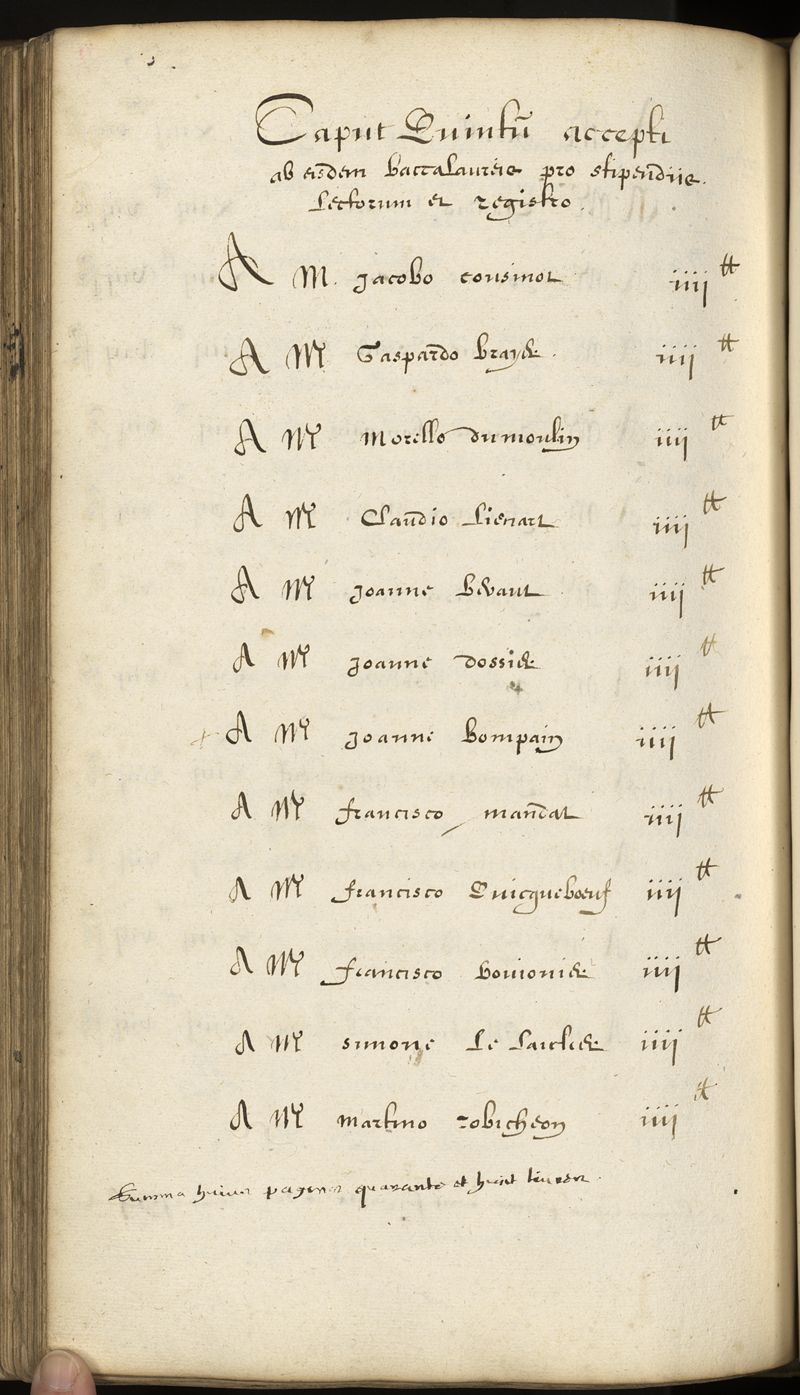 Caput Quintũ accepti
ab eisdem baccalaureis pro stipendiis
Lectorum et registro.
A M. Jacobo cousinot iiij ₶
A M Gaspardo brayer. iiij ₶
A M Morello dumoulin iiij ₶
A M Claudio Lienart iiij ₶
A M Joanne iiij ₶
A M Joanne dossier iiij ₶
A M Joanne bompain iiij ₶
A M francisco mandat iiij ₶
A M francisco Quicqueboeuf iiij ₶
A M francisco iiij ₶
A M simone Le iiij ₶
A M martino robicheon iiij ₶
Summa huius paginae quarante et huict livres.